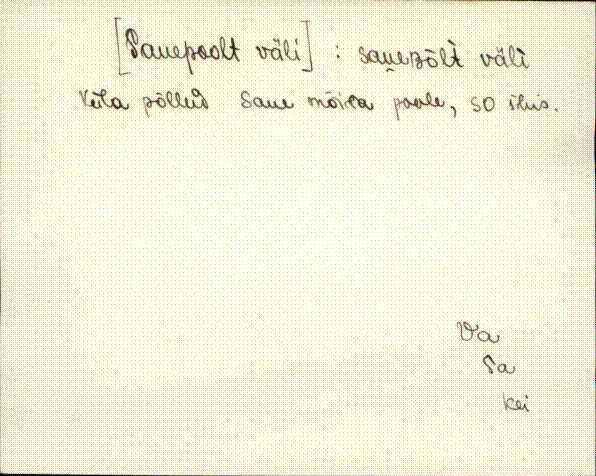 [Sauepoolt väli] : sau̯epōlt̀ väl̀i
Küla põllud Saue mõisa poole, so ühis.
Va
Sa
kei